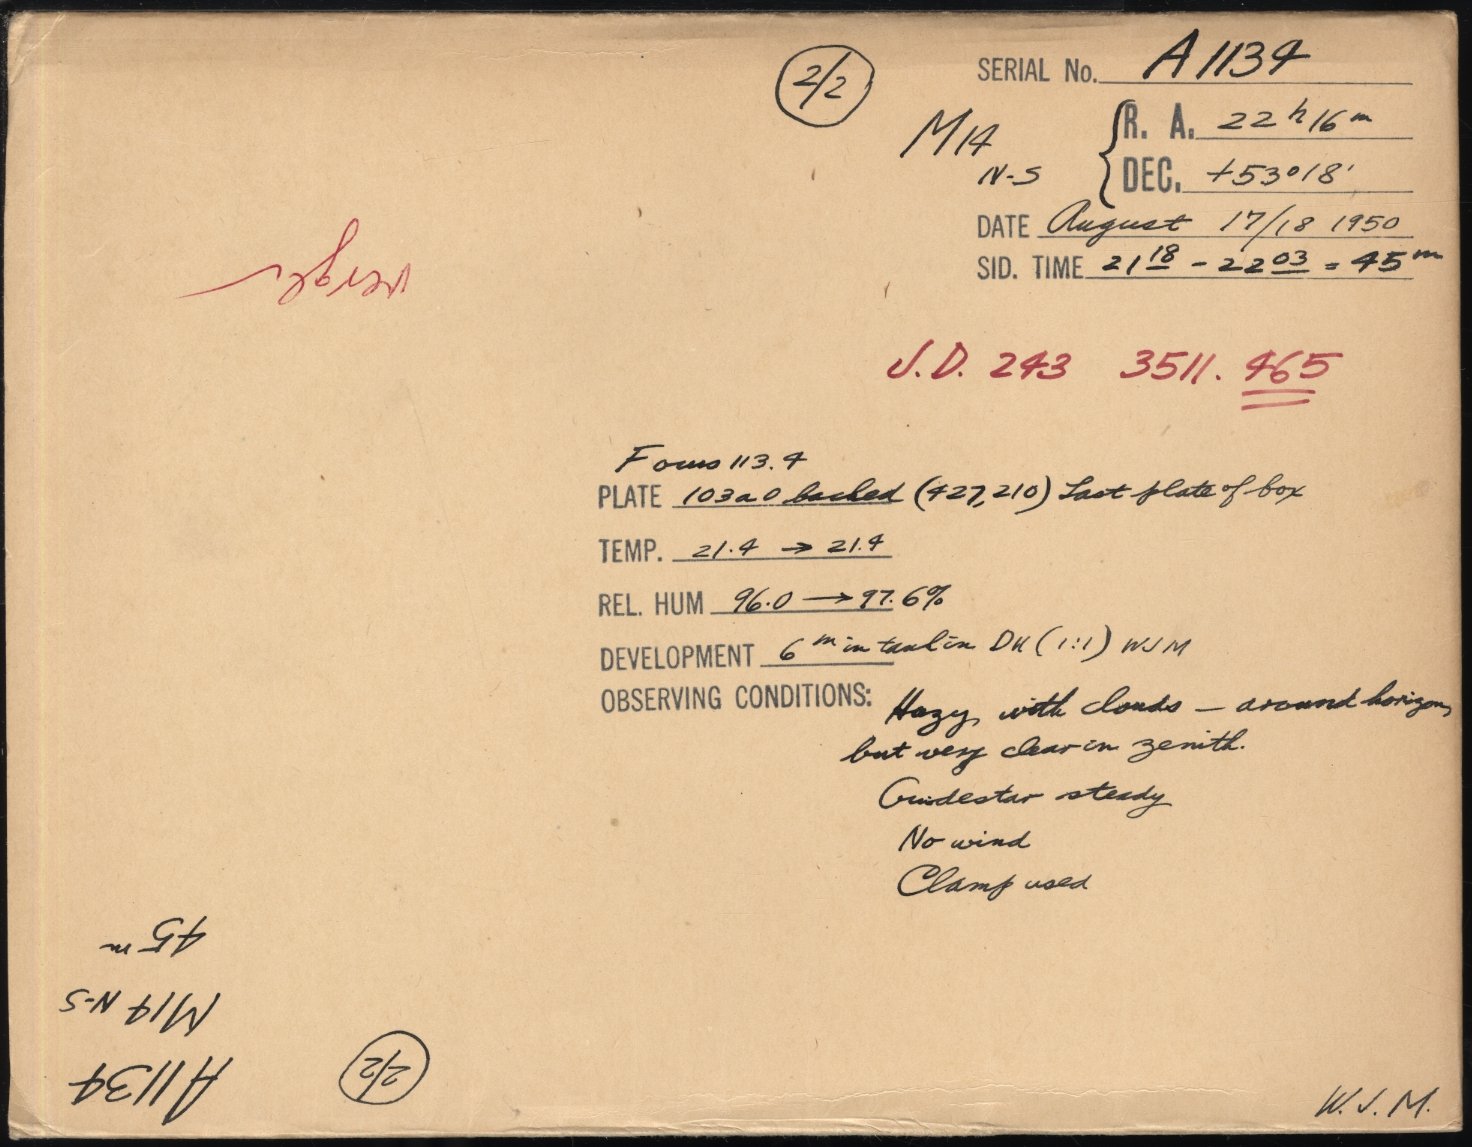 2/2
SERIAL No. A1134
M14 N-S
R. A. 22 h 16 m
DEC. +53° 18'
DATE August 17/18 1950
SID. TIME 21 18 - 22 03 = 45 m
J.D. 243 3511.465
Focus 113.4
PLATE 103a O backed (427,210) Last plate of box
TEMP. 21.4 → 21.4
REL. HUM 96.0 → 97.6%
DEVELOPMENT 6 m in tank in DK (1:1) WJM
OBSERVING CONDITIONS: Hazy, with clouds - around horizon,
but very clear in zenith.
Guidestar steady
No wind
Clamp used
W.J.M.
2/2
A1134
M14 N-S
45 m